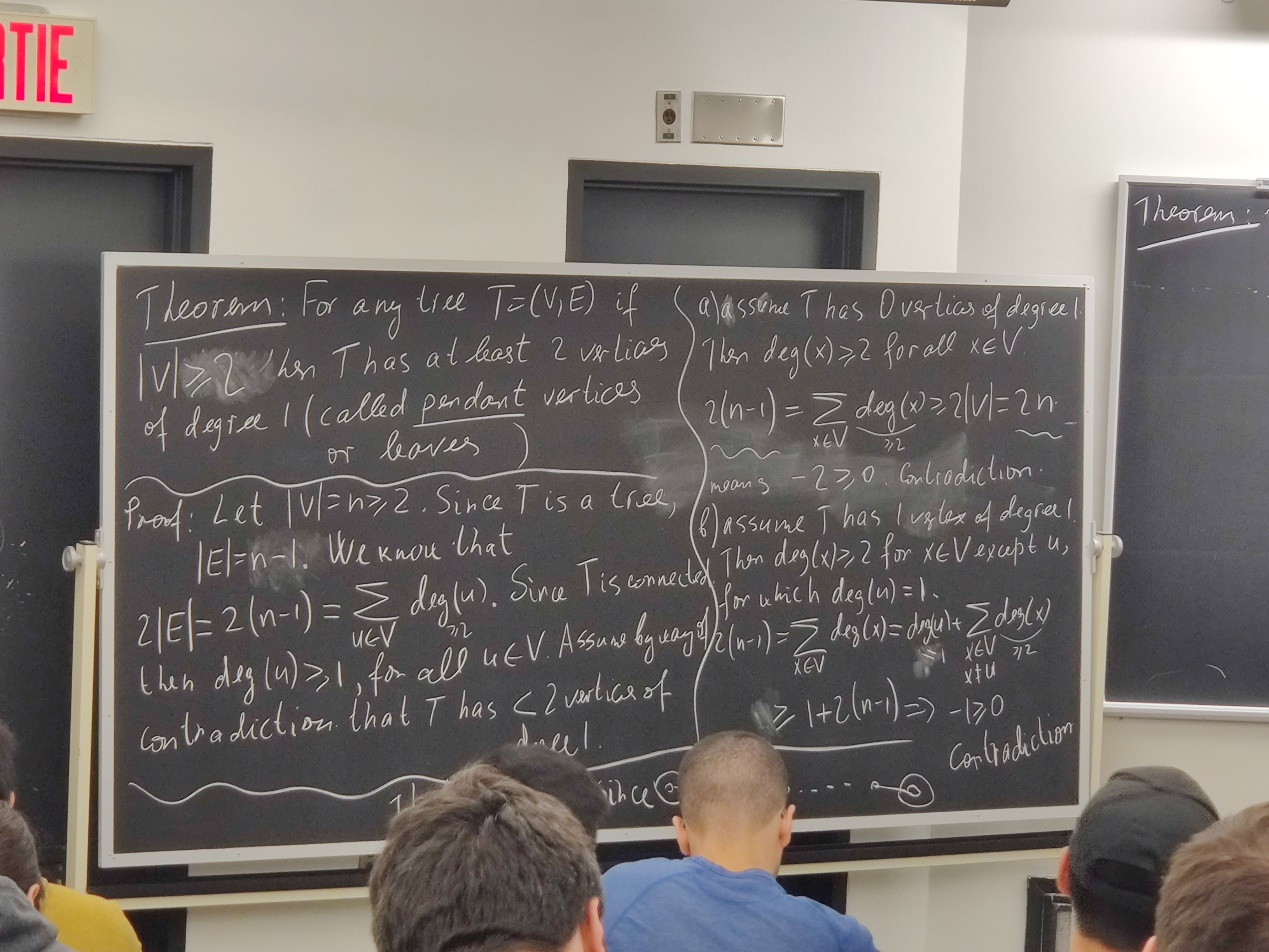 RTIE
Theorem: For any tree T=(V,E) if
|V|≥2 then T has at least 2 vertices
of degree 1 (called pendant vertices
or leaves)
Proof: Let |V|=n≥2. Since T is a tree,
|E|=n-1. We know that
2|E|=2(n-1)=∑ deg(u). Since T is connected
u∈V ≥2
then deg(u)≥1, for all u∈V. Assume by way of
contradiction that T has <2 vertices of
degree 1.
since
a) assume T has 0 vertices of degree 1.
Then deg(x)≥2 for all x∈V.
2(n-1)=∑ deg(x)≥2|V|=2n.
x∈V ≥2
means -2≥0. Contradiction.
b) assume T has 1 vertex of degree 1.
Then deg(x)≥2 for x∈V except u,
for which deg(u)=1.
2(n-1)=∑ deg(x)=deg(u)+∑ deg(x)
x∈V =1 x∈V ≥2
x≠u
≥ 1+2(n-1)=> -1≥0
Contradiction
Theorem: